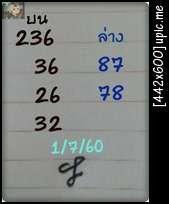 บน
236 ล่าง
36 87
26 78
32
1/7/60
[442x600] upic.me